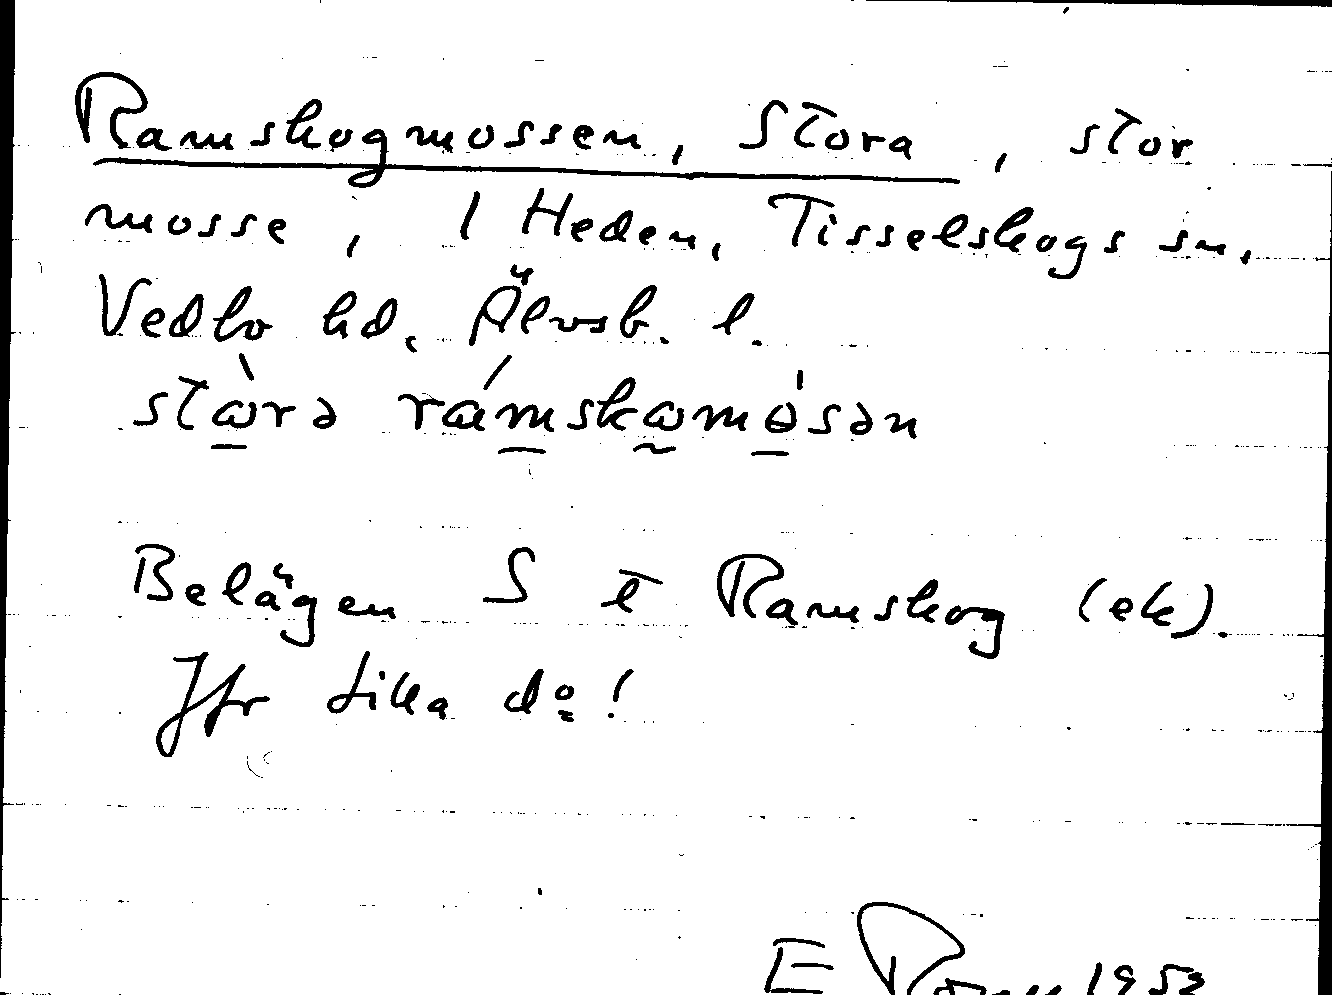 Ramskogmossen, Stora, stor
mosse, 1 Heden, Tisselskogs sn,
Vedbo hd, Älvsb. l.
stɷ̀rə rámskɷmosən
Belägen S t Ramskog (ek).
Jfr Lilla do!
E 1953